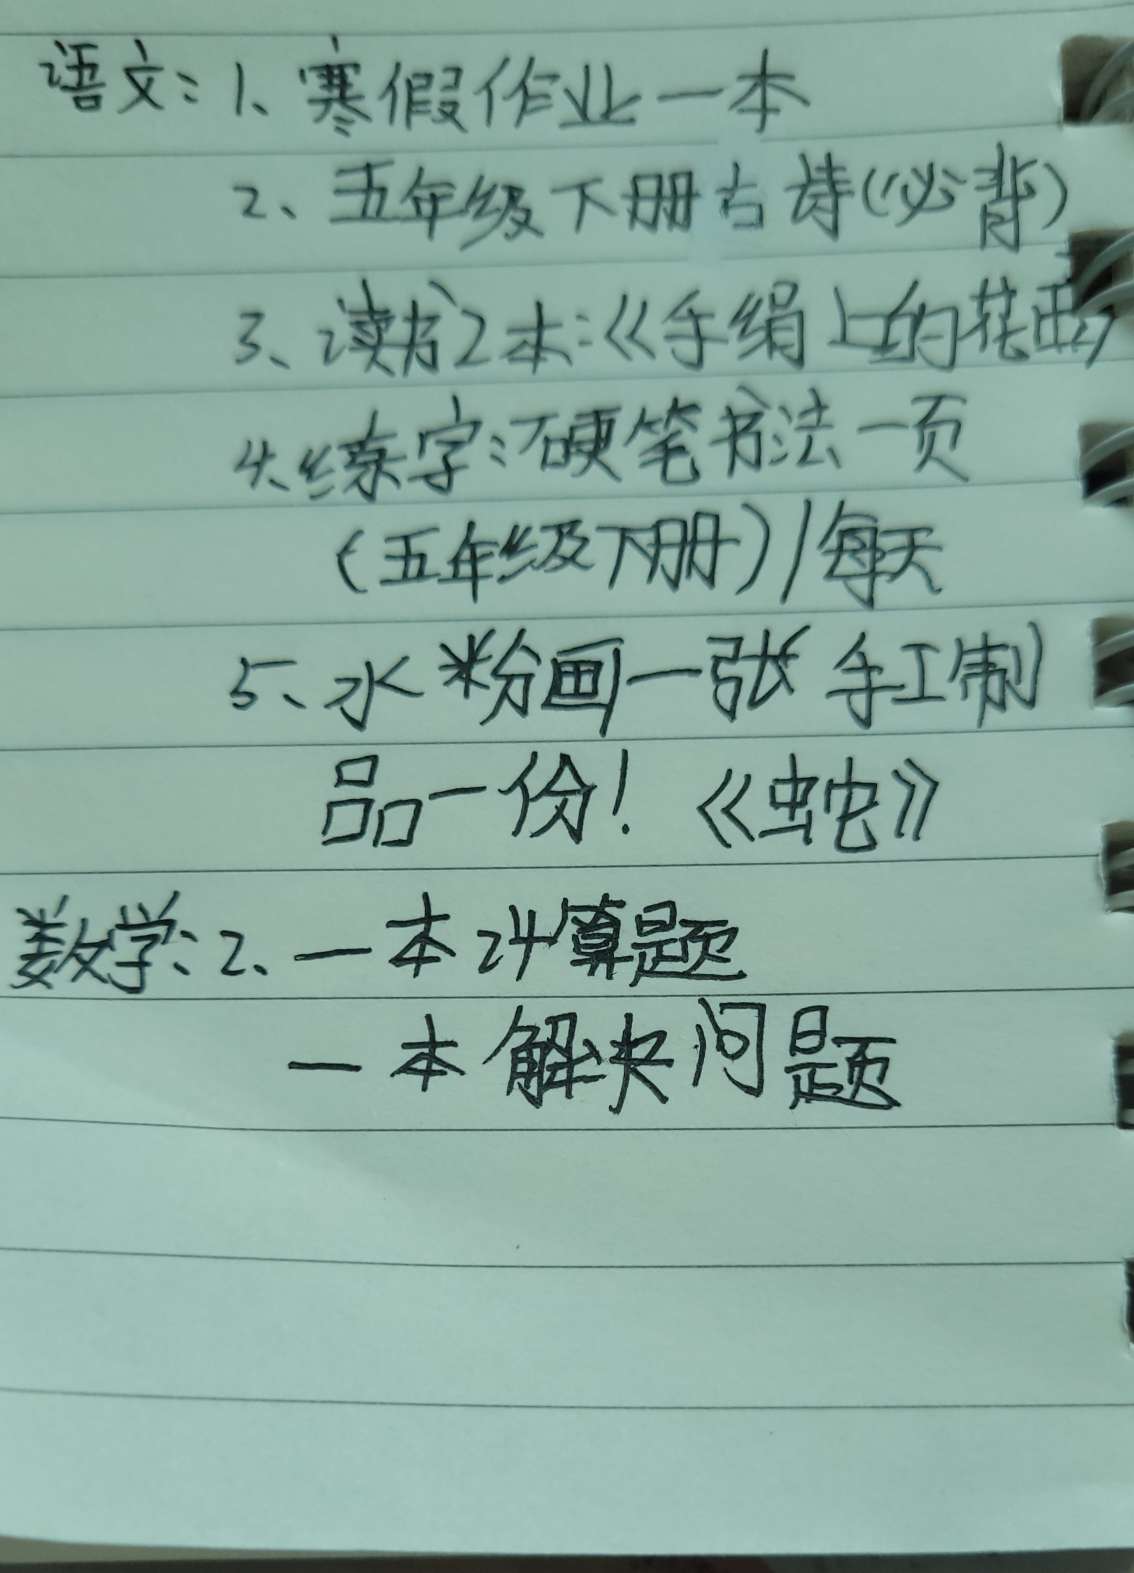 语文：1、寒假作业一本
2、五年级下册古诗(必背)
3、读书2本：《手绢上的花田》
4、练字：硬笔书法一页
(五年级下册)/每天
5、水粉画一张 手工制
品一份！《蛇》
数学：2、一本计算题
一本解决问题